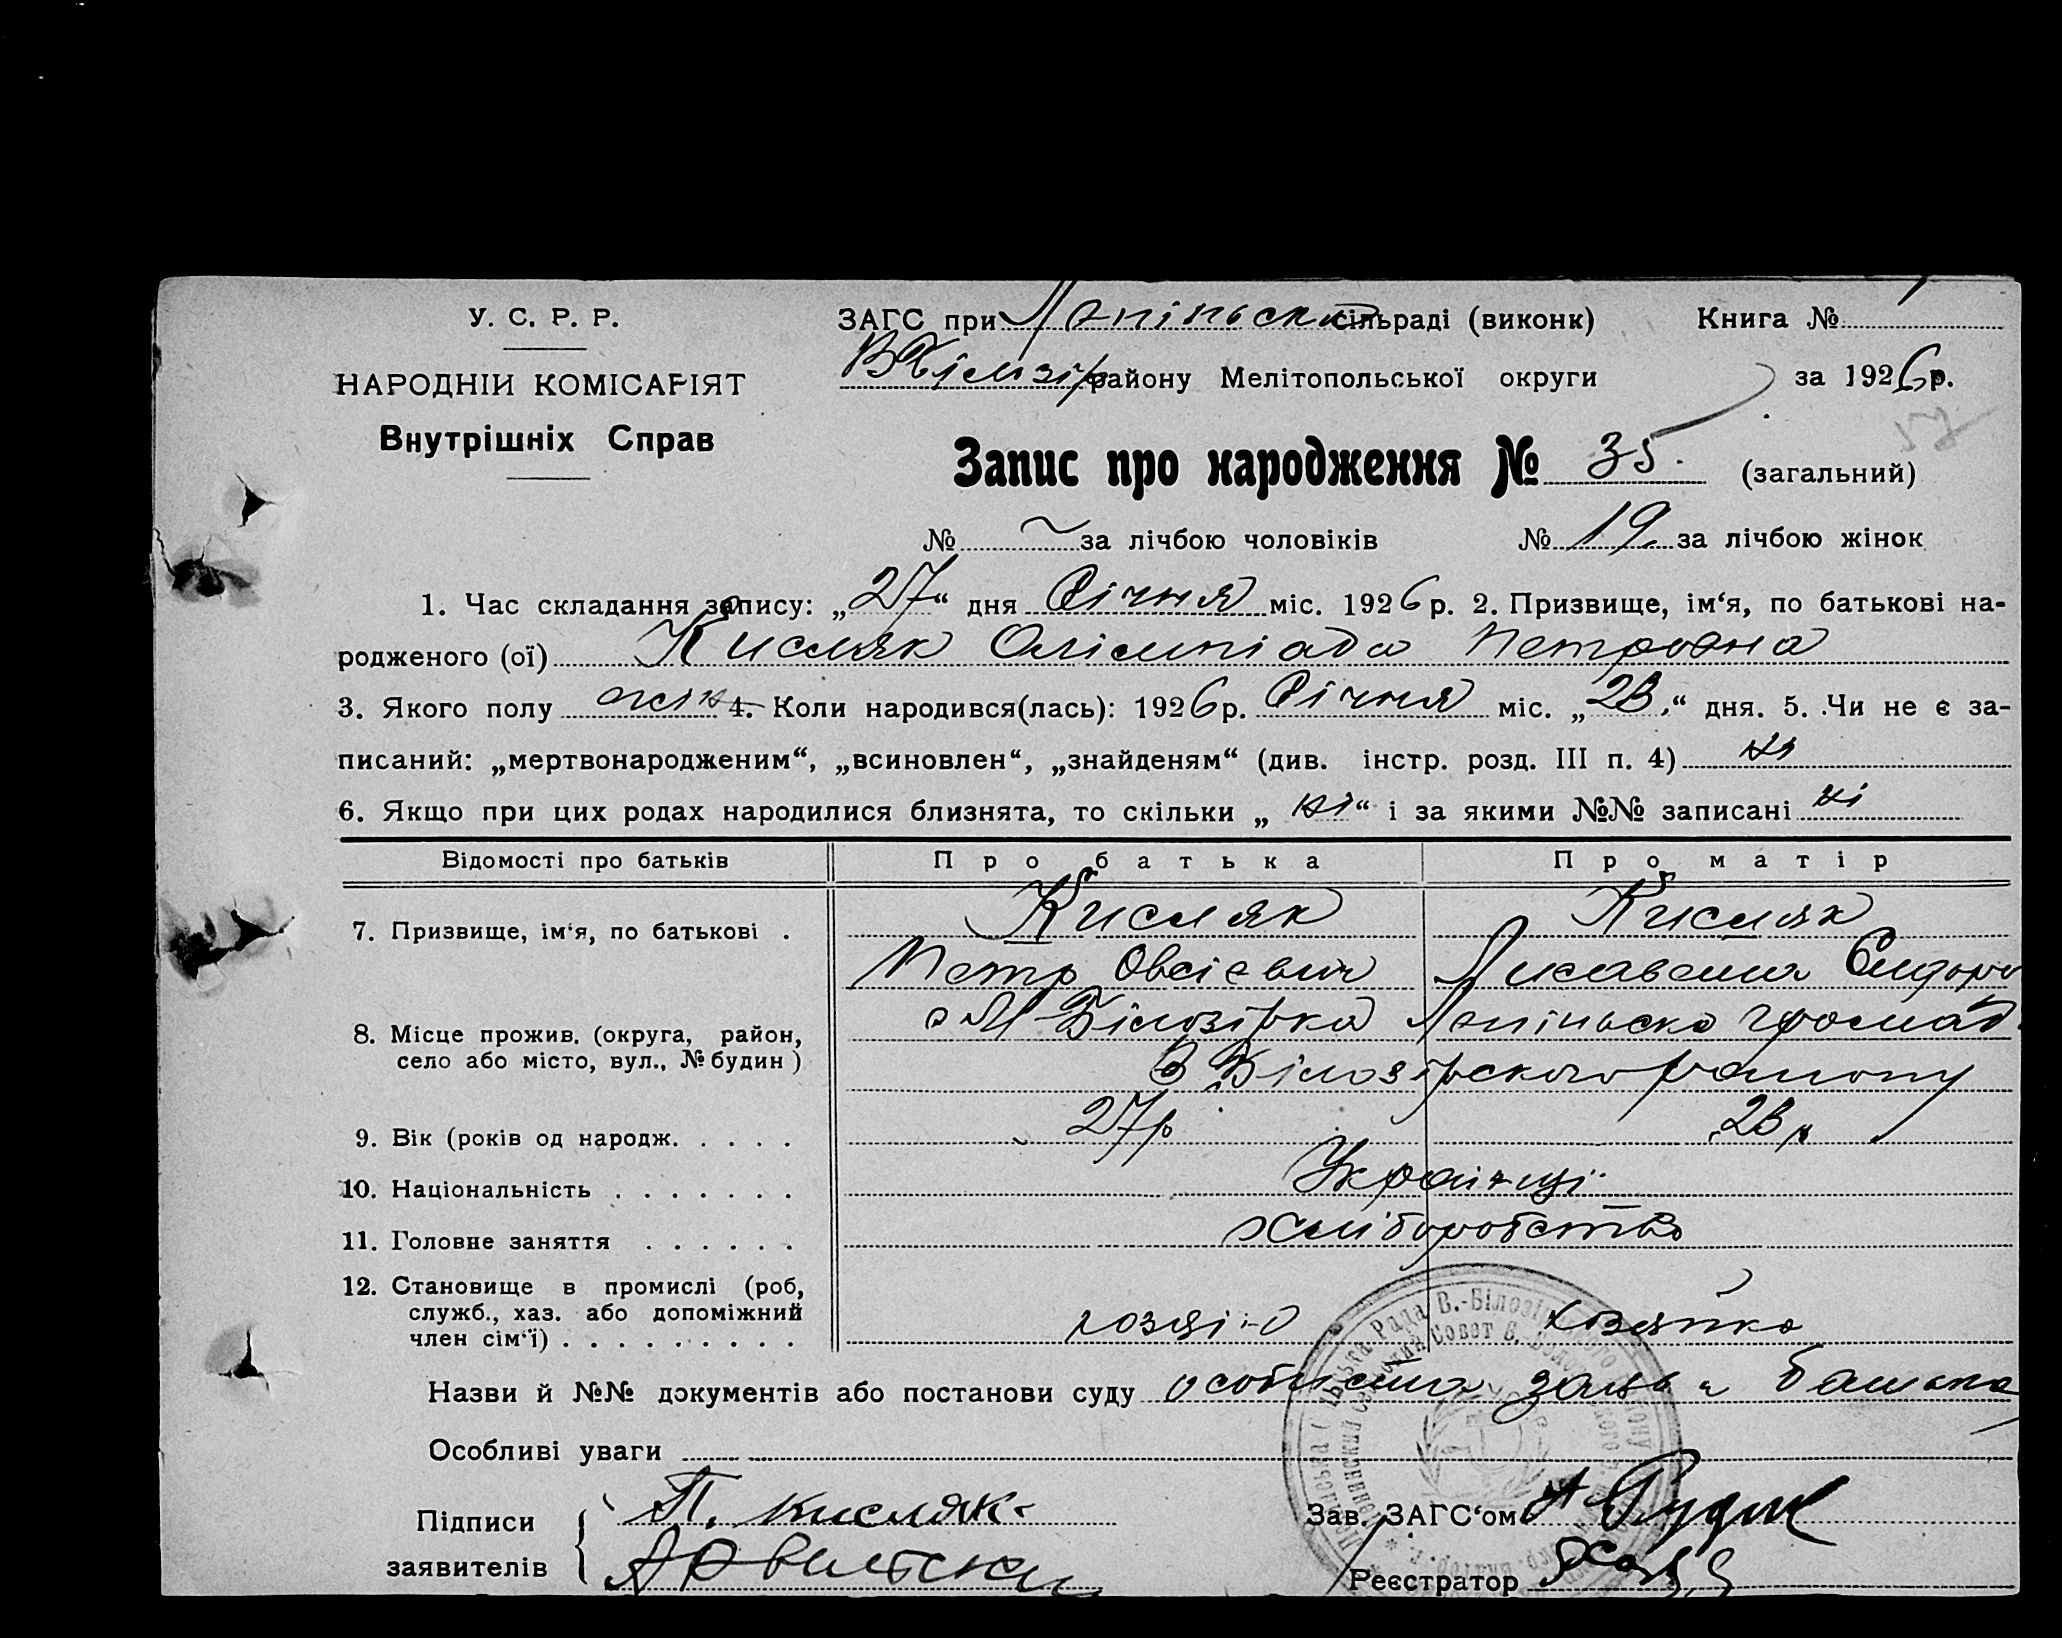 У. С. Р. Р.
НАРОДНІЙ КОМІСАРІЯТ
Внутрішніх Справ
ЗАГС при сільраді (виконк) Книга №
району Мелітопольської округи за 1926 р.
Запис про народження № 35 (загальний)
№ за лічбою чоловіків № 19 за лічбою жінок
1. Час складання запису: „27“ дня Січня міс. 1926 р. 2. Призвище, ім‘я, по батькові на-
родженого (ої) Кисляк Олімпіада Петровна
3. Якого полу жін 4. Коли народився(лась): 1926 р. Січня міс. „23“ дня. 5. Чи не є за-
писаний: „мертвонародженим“, „всиновлен“, „знайденям“ (див. інстр. розд. III п. 4) ні
6. Якщо при цих родах народилися близнята, то скільки „ні“ і за якими №№ записані ні
Відомості про батьків Про батька Про матір
7. Призвище, ім‘я, по батькові . Кисляк Кисляк
Петр Овсієвич Лисавета Сидоро
8. Місце прожив. (округа, район, село або місто, вул., № будин) М Білозірка громад.
В Білозірського району
9. Вік (років од народж. . . . . 27 р 23 р
10. Національність . . . . . . . Українці
11. Головне заняття . . . . . . хліборобство
12. Становище в промислі (роб, служб., хаз. або допоміжний член сім‘ї) . . . . . . . . . хозяін хозяйка
Назви й №№ документів або постанови суду особиста заява батька
Особливі уваги
Підписи заявителів П. Кисляк
Зав. ЗАГС‘ом
Реєстратор